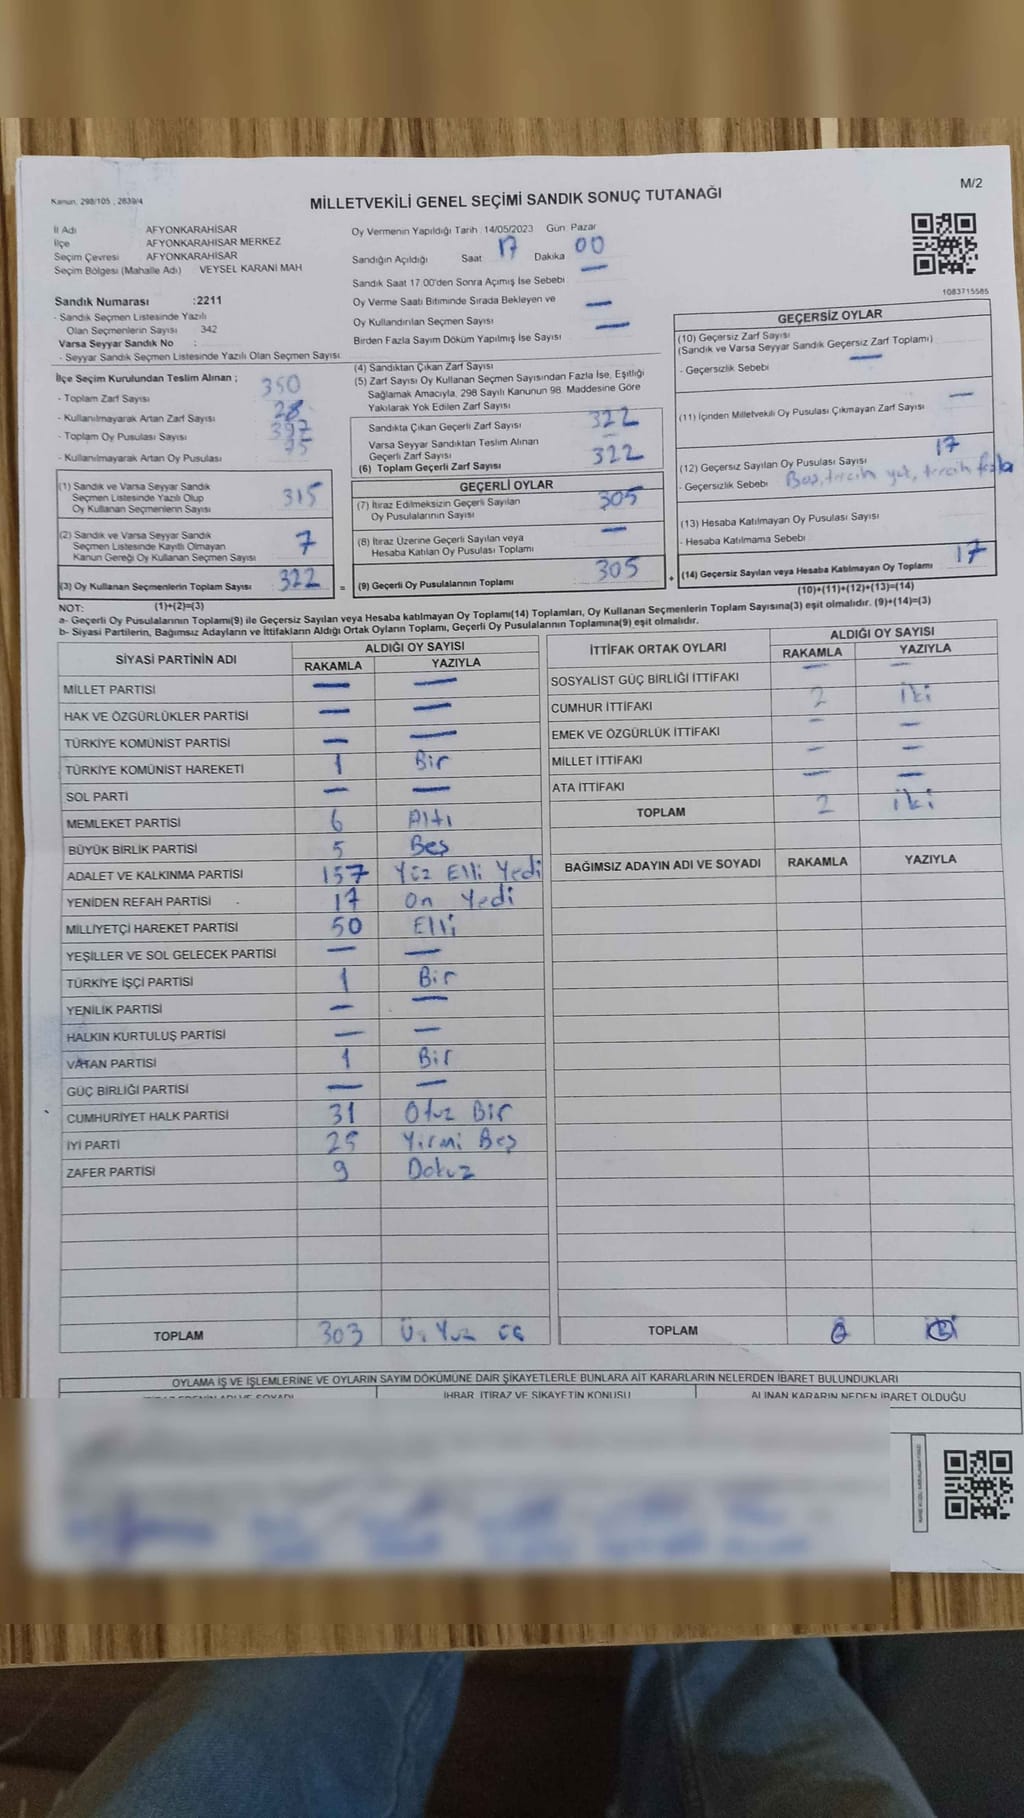 M/2
Kanun, 298/105 , 2839/4
MİLLETVEKİLİ GENEL SEÇİMİ SANDIK SONUÇ TUTANAĞI
İl Adı AFYONKARAHİSAR
İlçe AFYONKARAHİSAR MERKEZ
Seçim Çevresi AFYONKARAHİSAR
Seçim Bölgesi (Mahalle Adı) VEYSEL KARANİ MAH
Sandık Numarası :2211
- Sandık Seçmen Listesinde Yazılı
Olan Seçmenlerin Sayısı 342
Varsa Seyyar Sandık No :
- Seyyar Sandık Seçmen Listesinde Yazılı Olan Seçmen Sayısı
Oy Vermenin Yapıldığı Tarih : 14/05/2023 Gün: Pazar
Sandığın Açıldığı Saat 17 Dakika 00
Sandık Saat 17.00'den Sonra Açımış İse Sebebi —
Oy Verme Saati Bitiminde Sırada Bekleyen ve
Oy Kullandırılan Seçmen Sayısı —
Birden Fazla Sayım Döküm Yapılmış İse Sayısı —
1083715585
İlçe Seçim Kurulundan Teslim Alınan ;
- Toplam Zarf Sayısı 350
- Kullanılmayarak Artan Zarf Sayısı 28
- Toplam Oy Pusulası Sayısı
- Kullanılmayarak Artan Oy Pusulası
(1) Sandık ve Varsa Seyyar Sandık
Seçmen Listesinde Yazılı Olup
Oy Kullanan Seçmenlerin Sayısı 315
(2) Sandık ve Varsa Seyyar Sandık
Seçmen Listesinde Kayıtlı Olmayan
Kanun Gereği Oy Kullanan Seçmen Sayısı 7
(3) Oy Kullanan Seçmenlerin Toplam Sayısı 322 =
(4) Sandıktan Çıkan Zarf Sayısı
(5) Zarf Sayısı Oy Kullanan Seçmen Sayısından Fazla İse, Eşitliği
Sağlamak Amacıyla, 298 Sayılı Kanunun 98. Maddesine Göre
Yakılarak Yok Edilen Zarf Sayısı
Sandıkta Çıkan Geçerli Zarf Sayısı 322
Varsa Seyyar Sandıktan Teslim Alınan
Geçerli Zarf Sayısı —
(6) Toplam Geçerli Zarf Sayısı 322
GEÇERLİ OYLAR
(7) İtiraz Edilmeksizin Geçerli Sayılan
Oy Pusulalarının Sayısı 305
(8) İtiraz Üzerine Geçerli Sayılan veya
Hesaba Katılan Oy Pusulası Toplamı —
(9) Geçerli Oy Pusulalarının Toplamı 305 +
GEÇERSİZ OYLAR
(10) Geçersiz Zarf Sayısı
(Sandık ve Varsa Seyyar Sandık Geçersiz Zarf Toplamı)
- Geçersizlik Sebebi —
(11) İçinden Milletvekili Oy Pusulası Çıkmayan Zarf Sayısı —
(12) Geçersiz Sayılan Oy Pusulası Sayısı 17
- Geçersizlik Sebebi Boş, tercih yok, tercih fazla
(13) Hesaba Katılmayan Oy Pusulası Sayısı
- Hesaba Katılmama Sebebi
(14) Geçersiz Sayılan veya Hesaba Katılmayan Oy Toplamı 17
NOT: (1)+(2)=(3) (10)+(11)+(12)+(13)=(14)
a- Geçerli Oy Pusulalarının Toplamı(9) ile Geçersiz Sayılan veya Hesaba katılmayan Oy Toplamı(14) Toplamları, Oy Kullanan Seçmenlerin Toplam Sayısına(3) eşit olmalıdır. (9)+(14)=(3)
b- Siyasi Partilerin, Bağımsız Adayların ve İttifakların Aldığı Ortak Oyların Toplamı, Geçerli Oy Pusulalarının Toplamına(9) eşit olmalıdır.
SİYASİ PARTİNİN ADI ALDIĞI OY SAYISI
RAKAMLA YAZIYLA
MİLLET PARTİSİ — —
HAK VE ÖZGÜRLÜKLER PARTİSİ — —
TÜRKİYE KOMÜNİST PARTİSİ — —
TÜRKİYE KOMÜNİST HAREKETİ 1 Bir
SOL PARTİ — —
MEMLEKET PARTİSİ 6 Altı
BÜYÜK BİRLİK PARTİSİ 5 Beş
ADALET VE KALKINMA PARTİSİ 157 Yüz Elli Yedi
YENİDEN REFAH PARTİSİ 17 On Yedi
MİLLİYETÇİ HAREKET PARTİSİ 50 Elli
YEŞİLLER VE SOL GELECEK PARTİSİ — —
TÜRKİYE İŞÇİ PARTİSİ 1 Bir
YENİLİK PARTİSİ — —
HALKIN KURTULUŞ PARTİSİ — —
VATAN PARTİSİ 1 Bir
GÜÇ BİRLİĞİ PARTİSİ — —
CUMHURİYET HALK PARTİSİ 31 Otuz Bir
İYİ PARTİ 25 Yirmi Beş
ZAFER PARTİSİ 9 Dokuz
TOPLAM 303 Üç Yüz Üç
İTTİFAK ORTAK OYLARI ALDIĞI OY SAYISI
RAKAMLA YAZIYLA
SOSYALİST GÜÇ BİRLİĞİ İTTİFAKI — —
CUMHUR İTTİFAKI 2 İki
EMEK VE ÖZGÜRLÜK İTTİFAKI — —
MİLLET İTTİFAKI — —
ATA İTTİFAKI — —
TOPLAM 2 İki
BAĞIMSIZ ADAYIN ADI VE SOYADI RAKAMLA YAZIYLA
TOPLAM
OYLAMA İŞ VE İŞLEMLERİNE VE OYLARIN SAYIM DÖKÜMÜNE DAİR ŞİKAYETLERLE BUNLARA AİT KARARLARIN NELERDEN İBARET BULUNDUKLARI
İHBAR, İTİRAZ VE ŞİKAYETİN KONUSU ALINAN KARARIN NEDEN İBARET OLDUĞU